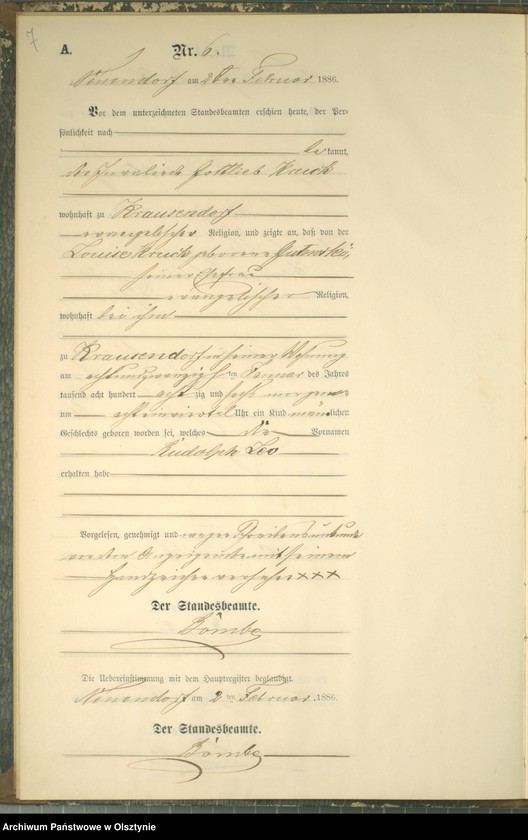 7
A. Nr. 6.
Neuendorf am 2ten Februar 1886.
Vor dem unterzeichneten Standesbeamten erschien heute, der Per-
sönlichkeit nach
bekannt,
der Gottlieb Kruck
wohnhaft zu Krausendorf
evangelischer Religion, und zeigte an, daß von der
Louise Kruck geborene
seiner Ehefrau
evangelischer Religion,
wohnhaft bei ihm
zu Krausendorf in seiner Wohnung
am achtundzwanzigsten Januar des Jahres
tausend acht hundert achtzig und sechs morgens
um acht einviertel Uhr ein Kind männlichen
Geschlechts geboren worden sei, welches die Vornamen
Rudolph Leo
erhalten habe
Vorgelesen, genehmigt und wegen Schreibensunkunde
von dem Anzeigenden mit seinem
Handzeichen versehen XXX
Der Standesbeamte.
Bömbe
Die Uebereinstimmung mit dem Hauptregister beglaubigt.
Neuendorf am 2ten Februar 1886.
Der Standesbeamte.
Bömbe
Archiwum Państwowe w Olsztynie